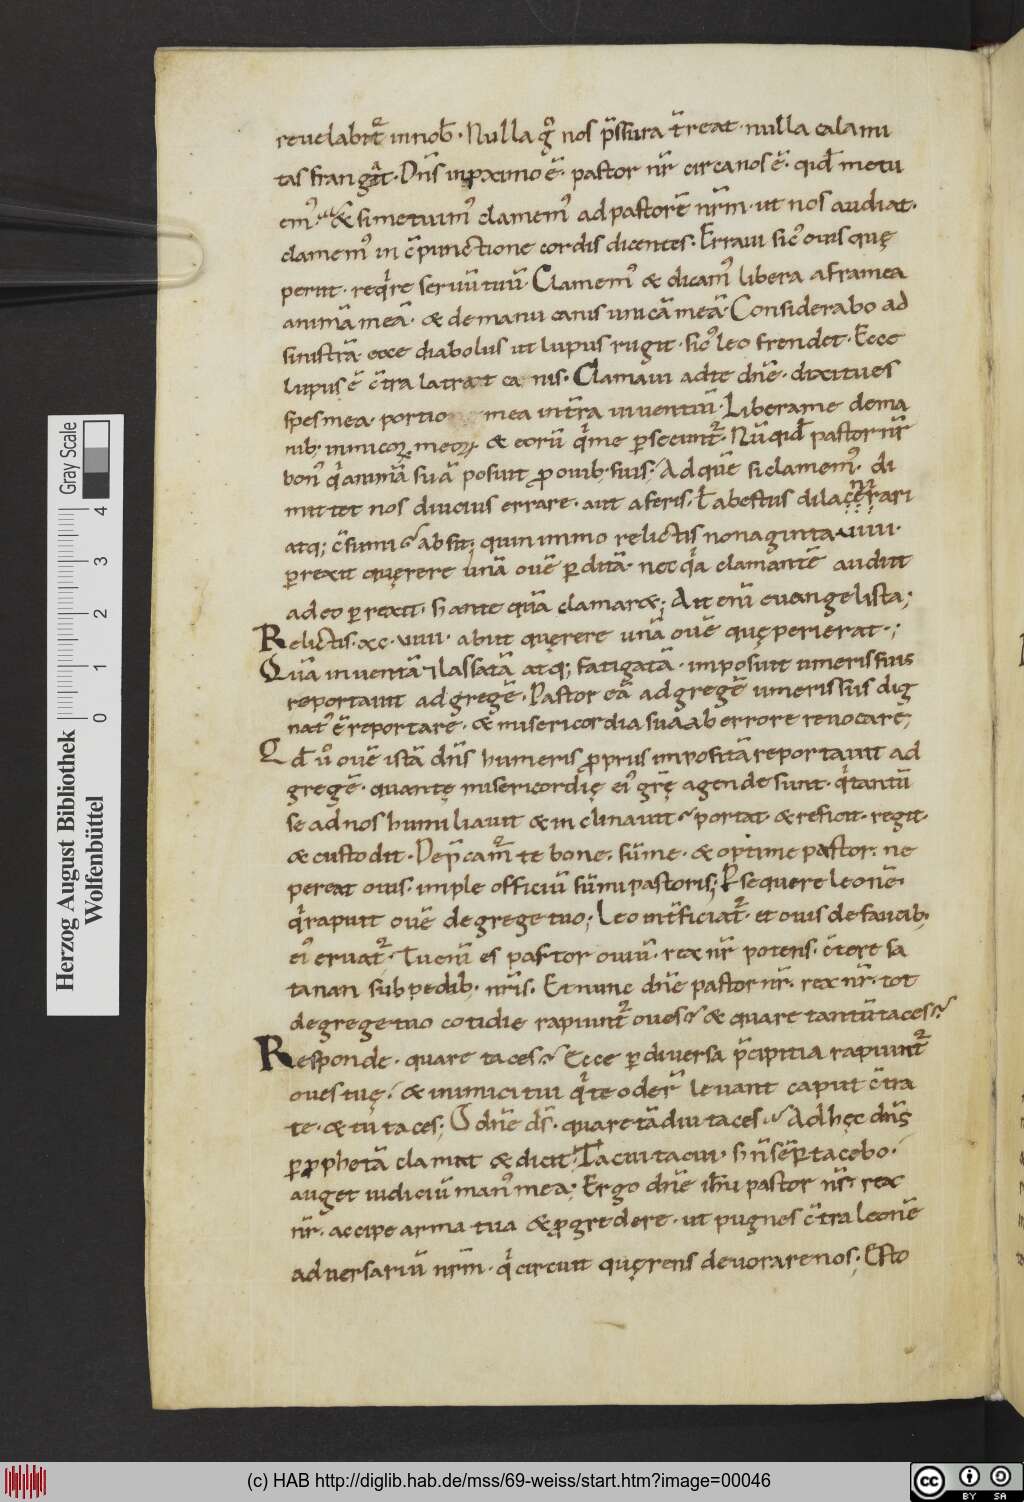 reuelabit᷑ in nob̄. Nulla g̊ nos p̄ssura t̄reat. nulla calami
tas frang&. Dn̄s in p̱ximo ē. pastor nr̄ circa nos ē. qid̄ metu
em᷒. & si metuim᷒ clamem᷒ ad pastorē nr̄m. ut nos audiat.
clamem᷒ in c̄punctione cordis dicentes. Erraui sic᷒ ouis quę
periit. req̍re seruū tuū. Clamem᷒ & dicam᷒ libera a framea
animā meā. & de manu canis unicā meā. Considerabo ad
sinistrā. ecce diabolus ut lupus rugit. sic᷒ leo frendet. Ecce
lupus ē c̄tra latrat canis. Clamaui ad te dn̄e. dixi tu es
spes mea. portio mea in t̄ra uiuentiū. Libera me de ma
nib; inimicoꝝ meoꝝ. & eorū q̍ me ꝑsecunt᷑. Nūqid̄ pastor nr̄
bon᷒ q̍ animā suā posuit ꝓ ouib; suis; Ad quē si clamem᷒. di
mittet nos diucius errare. aut a feris. ł a bestiis dilacerari
atq; c̄sumi absit; quin immo relictis nonaginta uiiii.
ꝑrexit quęrere unā ouē ꝑditā. nec q̍a clamantē audiit
adeo ꝑrexit. s; ante quā clamar&; Ait enī euangelista;
Relictis. xc. uiiii. abiit quęrere unā ouē quę perierat.;
Quā inuentā 7 lassatā atq; fatigatā. imposuit umeris suis
reportauit ad gregē. Pastor eā ad gregē umeris suis dig
nat᷒ ē reportare. & misericordia sua ab errore reuocare;
Qd̄ ů ouē istā dn̄s humeris ꝓpriis inpositā reportauit ad
gregē. quantę misericordię ei᷒ gr̄ę agende sunt. q̍ tantū
se ad nos humiliauit & inclinauit. portat. & reficit. regit.
& custodit. Dep̄cam᷑ te bone. sūme. & optime pastor. ne
pereat ouis. imple officiū sūmi pastoris; Ꝑsequere leonē.
q̍ rapuit ouē de grege tuo; Leo int̄ficiat᷑. et ouis de faucib;
ei᷒ eruat᷑. Tu enī es pastor ouiū. rex nr̄ potens. c̄tere sa
tanan sub pedib; nr̄is. Et nunc dn̄e pastor nr̄. rex nr̄. tot
de grege tuo cotidie rapiunt᷑ oues. & quare tantū taces?
Responde. quare taces? Ecce ꝑ diuersa p̄cipitia rapiunt᷑
oues tuę. & inimici tui q̍ te oder̄ leuant caput c̄tra
te. & tu taces; O dn̄e ds̄. quare tādiu taces? Ad hęc dn̄s
ꝑ ꝓphetā clamat & dicit. Tacui tacui. s; n̄ sēꝑ tacebo.
auget iudiciū man᷒ mea; Ergo dn̄e ih̄u pastor nr̄. rex
nr̄. accipe arma tua & ꝓgredere. ut pugnes c̄tra leonē
aduersariū nr̄m. q̍ circuit quęrens deuorare nos; Esto
Herzog August Bibliothek
Wolfenbüttel
Gray Scale
0 1 2 3 4
(c) HAB http://diglib.hab.de/mss/69-weiss/start.htm?image=00046
cc BY SA